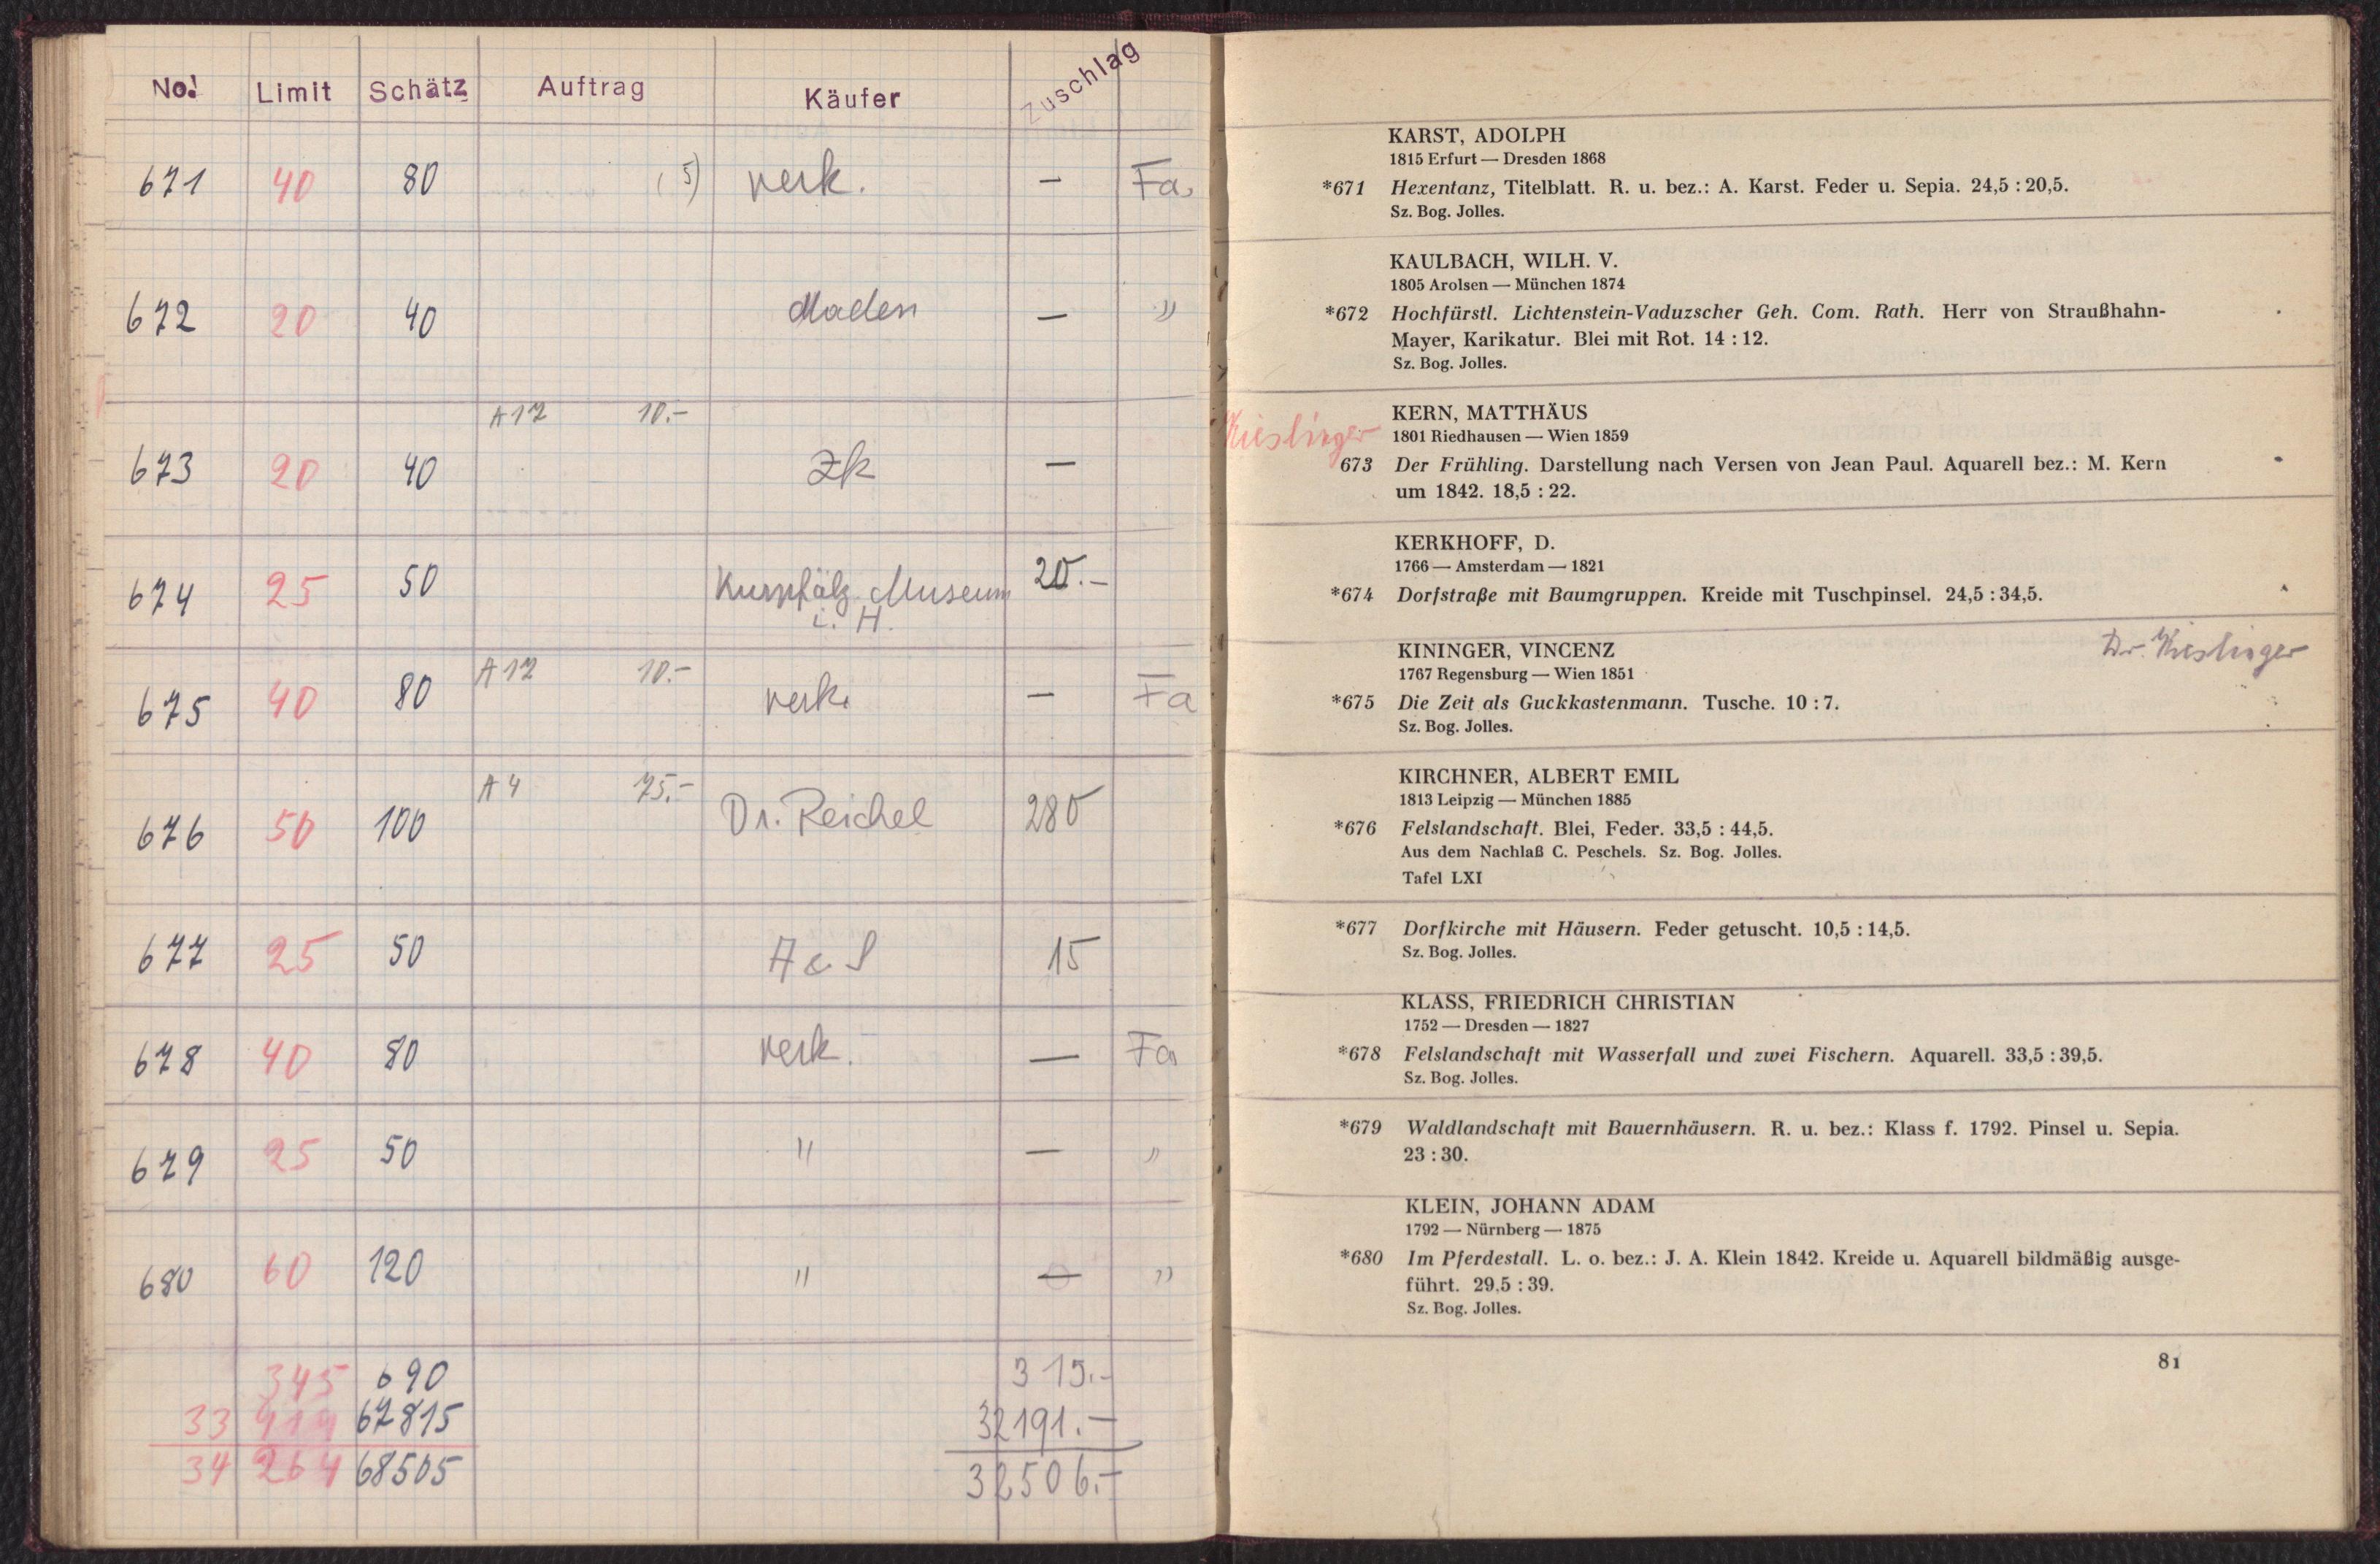 No. Limit Schätz Auftrag Käufer Zuschlag
671 40 80 (5) verk. — Fa.
672 20 40 Maden — "
A 12 10.-
673 20 40 Zk —
674 25 50 Kurpfälz. Museum 20.-
i. H.
A 12 10.-
675 40 80 verk. — Fa
A 4 75.-
676 50 100 Dr. Reichel 280
677 25 50 A & S 15
678 40 80 verk. — Fa
679 25 50 " — "
680 60 120 " — "
345 690 315.-
33 919 67815 32191.-
34 264 68505 32506.-
KARST, ADOLPH
1815 Erfurt — Dresden 1868
*671 Hexentanz, Titelblatt. R. u. bez.: A. Karst. Feder u. Sepia. 24,5 : 20,5.
Sz. Bog. Jolles.
KAULBACH, WILH. V.
1805 Arolsen — München 1874
*672 Hochfürstl. Lichtenstein-Vaduzscher Geh. Com. Rath. Herr von Straußhahn-
Mayer, Karikatur. Blei mit Rot. 14 : 12.
Sz. Bog. Jolles.
Kieslinger
KERN, MATTHÄUS
1801 Riedhausen — Wien 1859
673 Der Frühling. Darstellung nach Versen von Jean Paul. Aquarell bez.: M. Kern
um 1842. 18,5 : 22.
KERKHOFF, D.
1766 — Amsterdam — 1821
*674 Dorfstraße mit Baumgruppen. Kreide mit Tuschpinsel. 24,5 : 34,5.
KININGER, VINCENZ Dr. Kieslinger
1767 Regensburg — Wien 1851
*675 Die Zeit als Guckkastenmann. Tusche. 10 : 7.
Sz. Bog. Jolles.
KIRCHNER, ALBERT EMIL
1813 Leipzig — München 1885
*676 Felslandschaft. Blei, Feder. 33,5 : 44,5.
Aus dem Nachlaß C. Peschels. Sz. Bog. Jolles.
Tafel LXI
*677 Dorfkirche mit Häusern. Feder getuscht. 10,5 : 14,5.
Sz. Bog. Jolles.
KLASS, FRIEDRICH CHRISTIAN
1752 — Dresden — 1827
*678 Felslandschaft mit Wasserfall und zwei Fischern. Aquarell. 33,5 : 39,5.
Sz. Bog. Jolles.
*679 Waldlandschaft mit Bauernhäusern. R. u. bez.: Klass f. 1792. Pinsel u. Sepia.
23 : 30.
KLEIN, JOHANN ADAM
1792 — Nürnberg — 1875
*680 Im Pferdestall. L. o. bez.: J. A. Klein 1842. Kreide u. Aquarell bildmäßig ausge-
führt. 29,5 : 39.
Sz. Bog. Jolles.
81